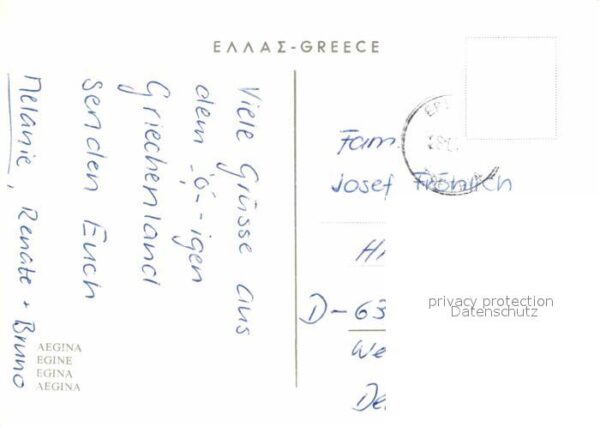 ΕΛΛΑΣ-GREECE
Viele Grüsse aus
dem -ö-igen
Griechenland
senden Euch
Melanie, Renate + Bruno
AEGINA
EGINE
EGINA
AEGINA
Fam.
Josef Fröhlich
D-63
privacy protection
Datenschutz